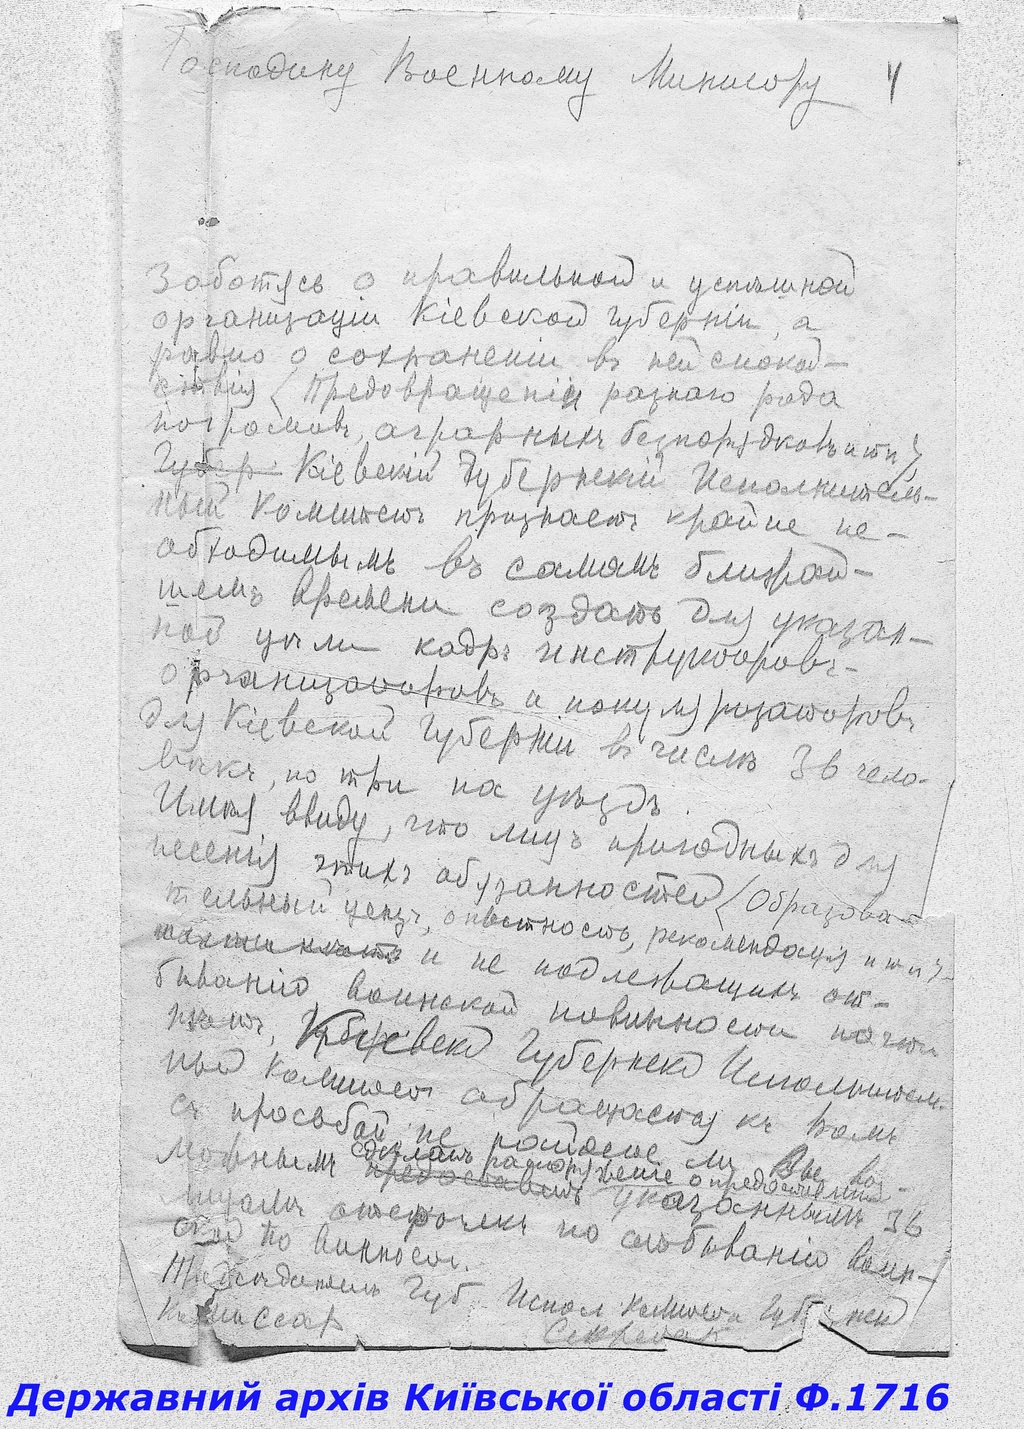 Господину Военному Министру 4
Заботясь о правильной и успѣшной
организаціи Кіевской Губерніи, а
равно о сохраненіи въ ней спокой-
ствія (предовращеніи разнаго рода
погромовъ, аграрныхъ безпорядковъ и т п)
Губер Кіевскій Губернскій Исполнитель-
ный Комитетъ признаетъ крайне не-
обходимымъ въ самомъ ближай-
шемъ времени создать для указан-
ной цѣли кадръ инструкторовъ-
организаторовъ и популяризаторовъ
для Кіевской Губерніи въ числѣ 36 чело-
вѣкъ, по три на уѣздъ.
Имѣя ввиду, что лицъ пригодныхъ для
несенія этихъ обязанностей (Образова-
тельный цензъ, опытность, рекомендація и т п)
и не подлежащихъ от-
быванію воинской повинности почти
нѣтъ, Кіевскій Губернскій Исполнитель-
ный Комитетъ обращается къ Вамъ
съ просьбой не найдете ли Вы воз-
можнымъ сдѣлать распоряженіе о предоставленіи
предоставить указаннымъ 36
лицамъ отсрочки по отбыванію воин-
ской по винности.
Предсѣдатель Губ Испол Комитета Губернский
Комиссар
Секретарь
Державний архів Київської області Ф.1716